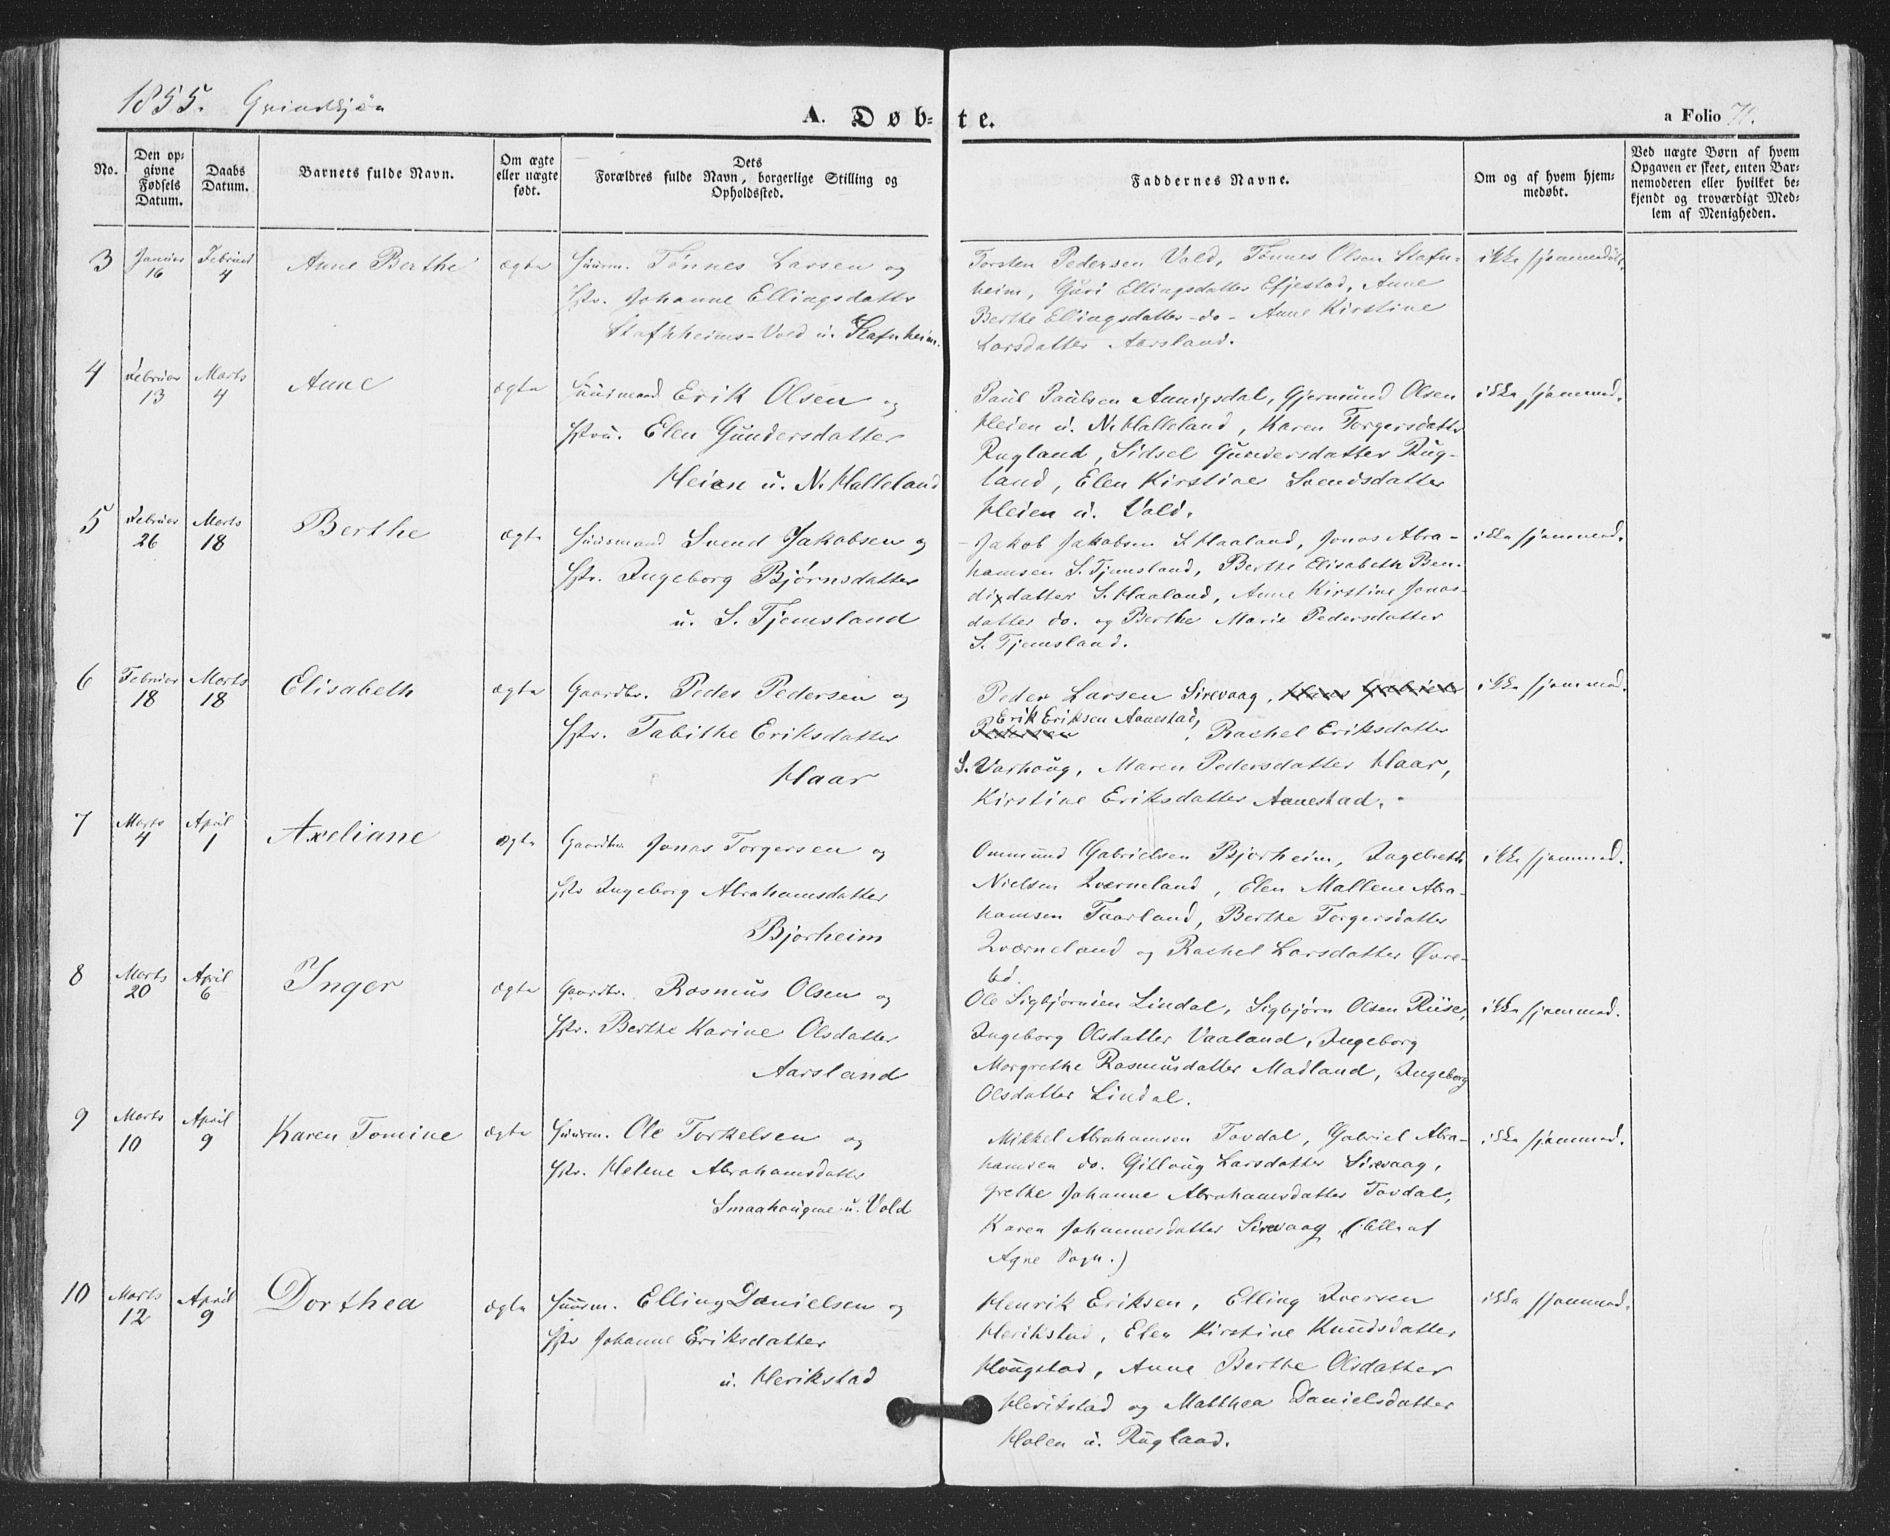 1855. Qvindkjøn
A. Døb= te.
a Folio 71.
No.
Den op=
givne
Fødsels
Datum.
Daabs
Datum.
Barnets fulde Navn.
Om ægte
eller uægte
født.
Dets
Forældres fulde Navn, borgerlige Stilling og
Opholdssted.
Faddernes Navne.
Om og af hvem hjem=
medøbt.
Ved uægte Børn af hvem
Opgaven er skeet, enten Bar=
nemoderen eller hvilket be=
kjendt og troværdigt Med=
lem af Menigheden.
3 Januar 16 Februar 4 Anne Berthe ægte
Huusm. Tønnes Larsen og
Hstr. Johanne Ellingsdatter
Stafnheims-Vold u. Stafnheim.
Torsten Pedersen Vold, Tønnes Olsen Stafn-
heim, Guri Ellingsdatter Efjestad, Anne
Berthe Ellingsdatter -do- Anne Kirstine
Larsdatter Aarsland.
ikke hjemmedøbt.
4 Februar 13 Marts 4 Anne ægte
Huusmand Erik Olsen og
Hstru. Elen Gundersdatter
Heien u. N. Halleland
Paul Paulsen Annigsdal, Gjermund Olsen
Heien u. N. Halleland, Karen Torgersdatter
Rugland, Sidsel Gundersdatter Rug-
land, Elen Kirstine Svendsdatter
Heien u. Vold.
ikke hjemmed.
5 Februar 26 Marts 18 Berthe ægte
Huusmand Svend Jakobsen og
Hstr. Ingeborg Bjørnsdatter
u. S. Tjemsland
Jakob Jakobsen S. Haaland, Jonas Abra-
hamsen S. Tjemsland, Berthe Elisabeth Ben-
dixdatter S. Haaland, Anne Kirstine Jonas-
datter do. og Berthe Marie Pedersdatter
S. Tjemsland.
ikke hjemmed.
6 Februar 18 Marts 18 Elisabeth ægte
Gaardbr. Peder Pedersen og
Hstr. Tabithe Eriksdatter
Haar
Peder Larsen Sirevaag, Hans Gabriel
Erik Eriksen Aanestad,
Pedersen, Rachel Eriksdatter
S. Varhoug, Maren Pedersdatter Haar,
Kirstine Eriksdatter Aanestad.
ikke hjemmed.
7 Marts 4 April 1 Axeliane ægte
Gaardbr. Jonas Torgersen og
Hstr Ingeborg Abrahamsdatter
Bjorheim
Ommund Gabrielsen Bjorheim, Ingebreth
Nielsen Qværneland, Elen Mallene Abra-
hamsen Taarland, Berthe Torgersdatter
Qværneland og Rachel Larsdatter Øvre-
bø.
ikke hjemmed.
8 Marts 20 April 6 Inger ægte
Gaardbr. Rasmus Olsen og
Hstr. Berthe Karine Olsdatter
Aarsland
Ole Sigbjørnsen Lindal, Sigbjørn Olsen Riise,
Ingeborg Olsdatter Vaaland, Ingeborg
Margrethe Rasmusdatter Madland, Ingeborg
Olsdatter Lindal.
ikke hjemmed.
9 Marts 10 April 9 Karen Tomine ægte
Huusm. Ole Torkelsen og
Hstr. Helene Abrahamsdatter
Smaahougene u. Vold
Mikkel Abrahamsen Tovdal, Gabriel Abra-
hamsen do. Gitloug Larsdatter Sirevaag,
Grethe Johanne Abrahamsdatter Tovdal,
Karen Johannesdatter Sirevaag (: alle af
Ogne Sogn.)
ikke hjemmed.
10 Marts 12 April 9 Dorthea ægte
Huusm. Elling Danielsen og
Hstr Johanne Eriksdatter
u. Herikstad
Henrik Eriksen, Elling Iversen
Herikstad, Elen Kirstine Knudsdatter
Hougstad, Anne Berthe Olsdatter
Herikstad og Matthea Danielsdatter
Holen u. Rugland.
ikke hjemmed.